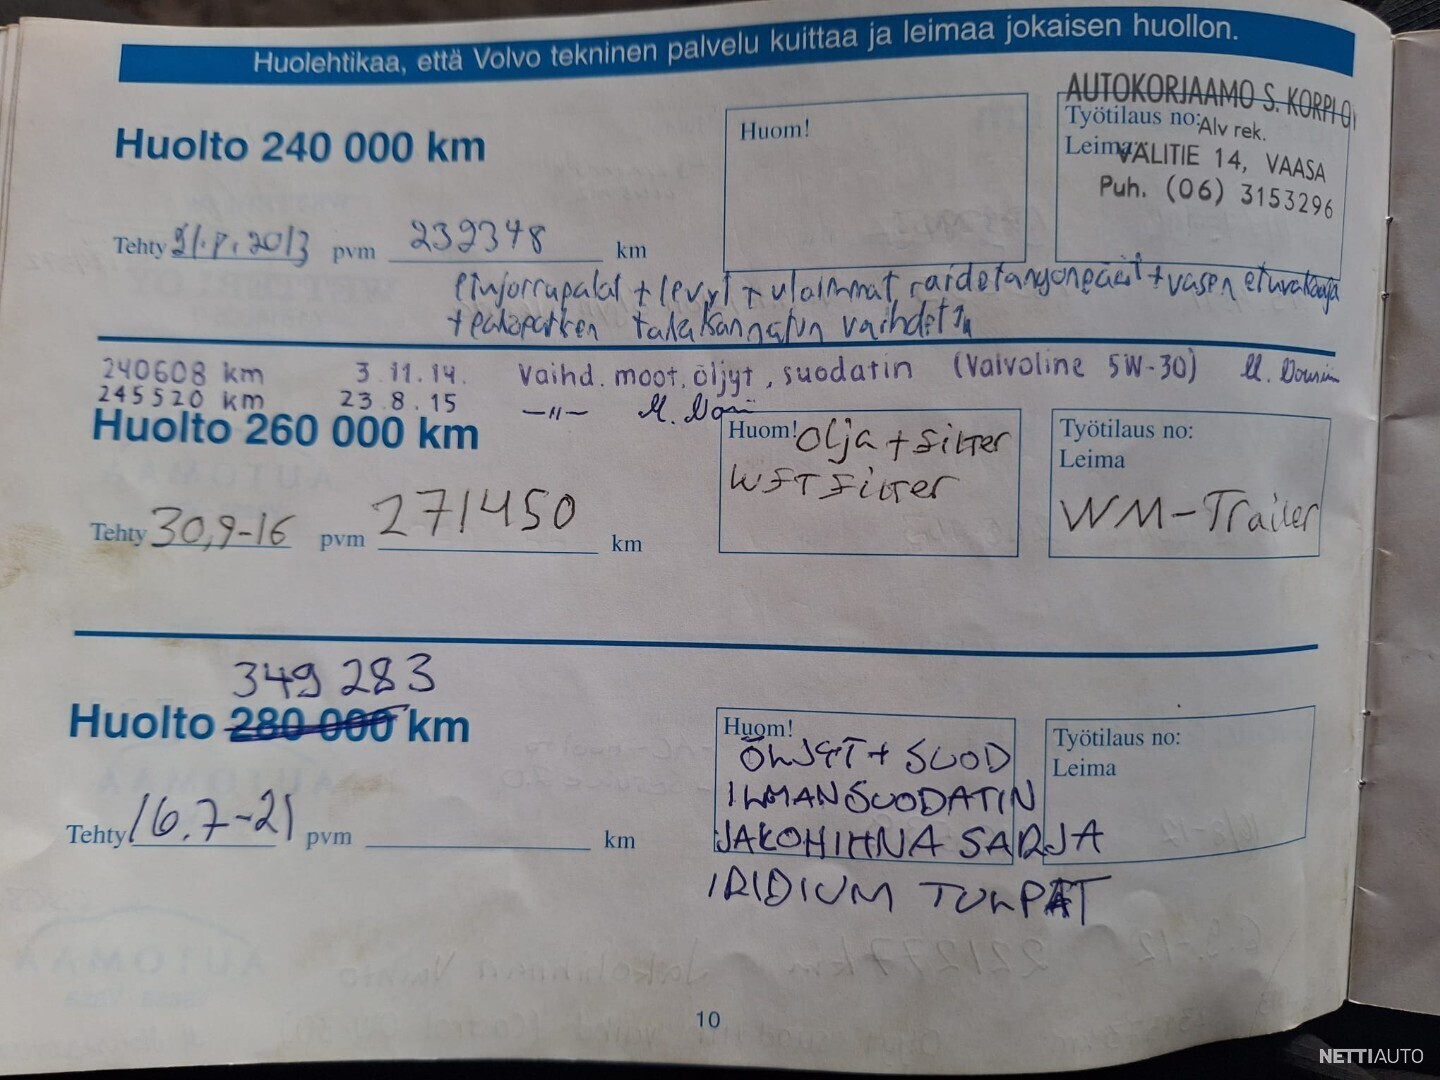 Huolehtikaa, että Volvo tekninen palvelu kuittaa ja leimaa jokaisen huollon.
AUTOKORJAAMO S. KORPI OY
Huolto 240 000 km
Huom!
Työtilaus no:
Alv rek.
Leima
VÄLITIE 14, VAASA
Puh. (06) 3153296
Tehty 2013 pvm 232348 km
etujarrupalat + levyt + uloimmat raidetangonpäät + vasen
takakannatin vaihdettu
240608 km 3.11.14. Vaihd. moot. öljyt, suodatin (Valvoline 5W-30)
245520 km 23.8.15 —"—
Huolto 260 000 km
Huom! Olja + Filter
Filter
Työtilaus no:
Leima
WM-Trailer
Tehty 30,9-16 pvm 271450 km
349 283
Huolto 280 000 km
Huom!
ÖLJYT + SUOD
ILMANSUODATIN
JAKOHIHNA SARJA
IRIDIUM TULPAT
Työtilaus no:
Leima
Tehty 16.7-21 pvm km
221277 km Jakohihnan vaihto
10
NETTIAUTO